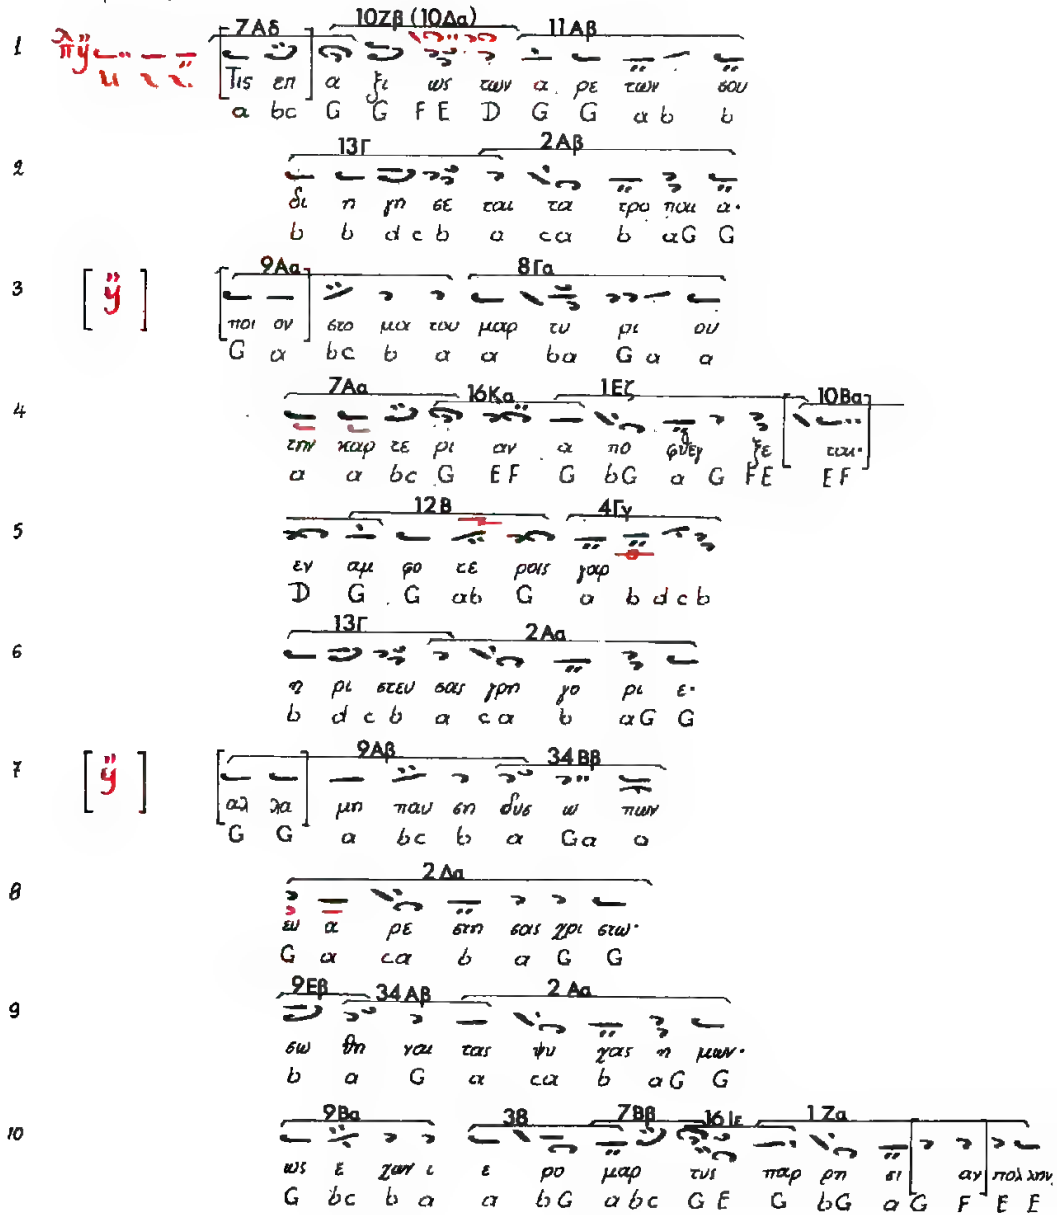 7Αδ 10Ζβ (10Δα) 11Αβ
1 Τις επ α ξι ως των α ρε των σου
a bc G G F E D G G a b b
13Γ 2Αβ
2 δι η γη σε ται τα τρο παι α·
b b d c b a ca b aG G
9Αα 8Γα
3 [ ÿ ] ποι ον στο μα του μαρ τυ ρι ου
G a bc b a a ba G a a
7Αα 16Κα 1Εζ 10Βα
4 την καρ τε ρι αν α πο φθεγ ξε ται·
a a bc G EF G bG a G FE EF
12Β 4Γγ
5 εν αμ φο τε ροις γαρ
D G G ab G a b d c b
13Γ 2Αα
6 η ρι στευ σας γρη γο ρι ε·
b d c b a ca b aG G
9Αβ 34Ββ
7 [ ÿ ] αλ λα μη παυ ση δυσ ω πων
G G a bc b a Ga a
2Δα
8 ευ α ρε στη σας χρι στω·
G a ca b a G G
9Εβ 34Αβ 2Αα
9 σω θη ναι τας ψυ χας η μων·
b a G a ca b aG G
9Βα 3Β 7Ββ 16Ιε 1Ζα
10 ως ε χων ι ε ρο μαρ τυς παρ ρη σι αν πολ λην.
G bc b a a bG abc GE G bG a G F E E